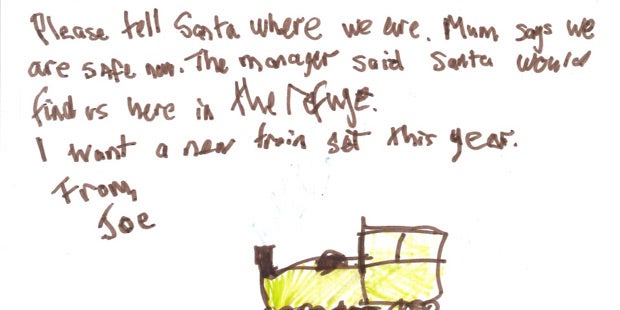 Please tell Santa where we are. Mum says we
are safe now. The manager said Santa would
find us here in the refuge.
I want a new train set this year.
From,
Joe